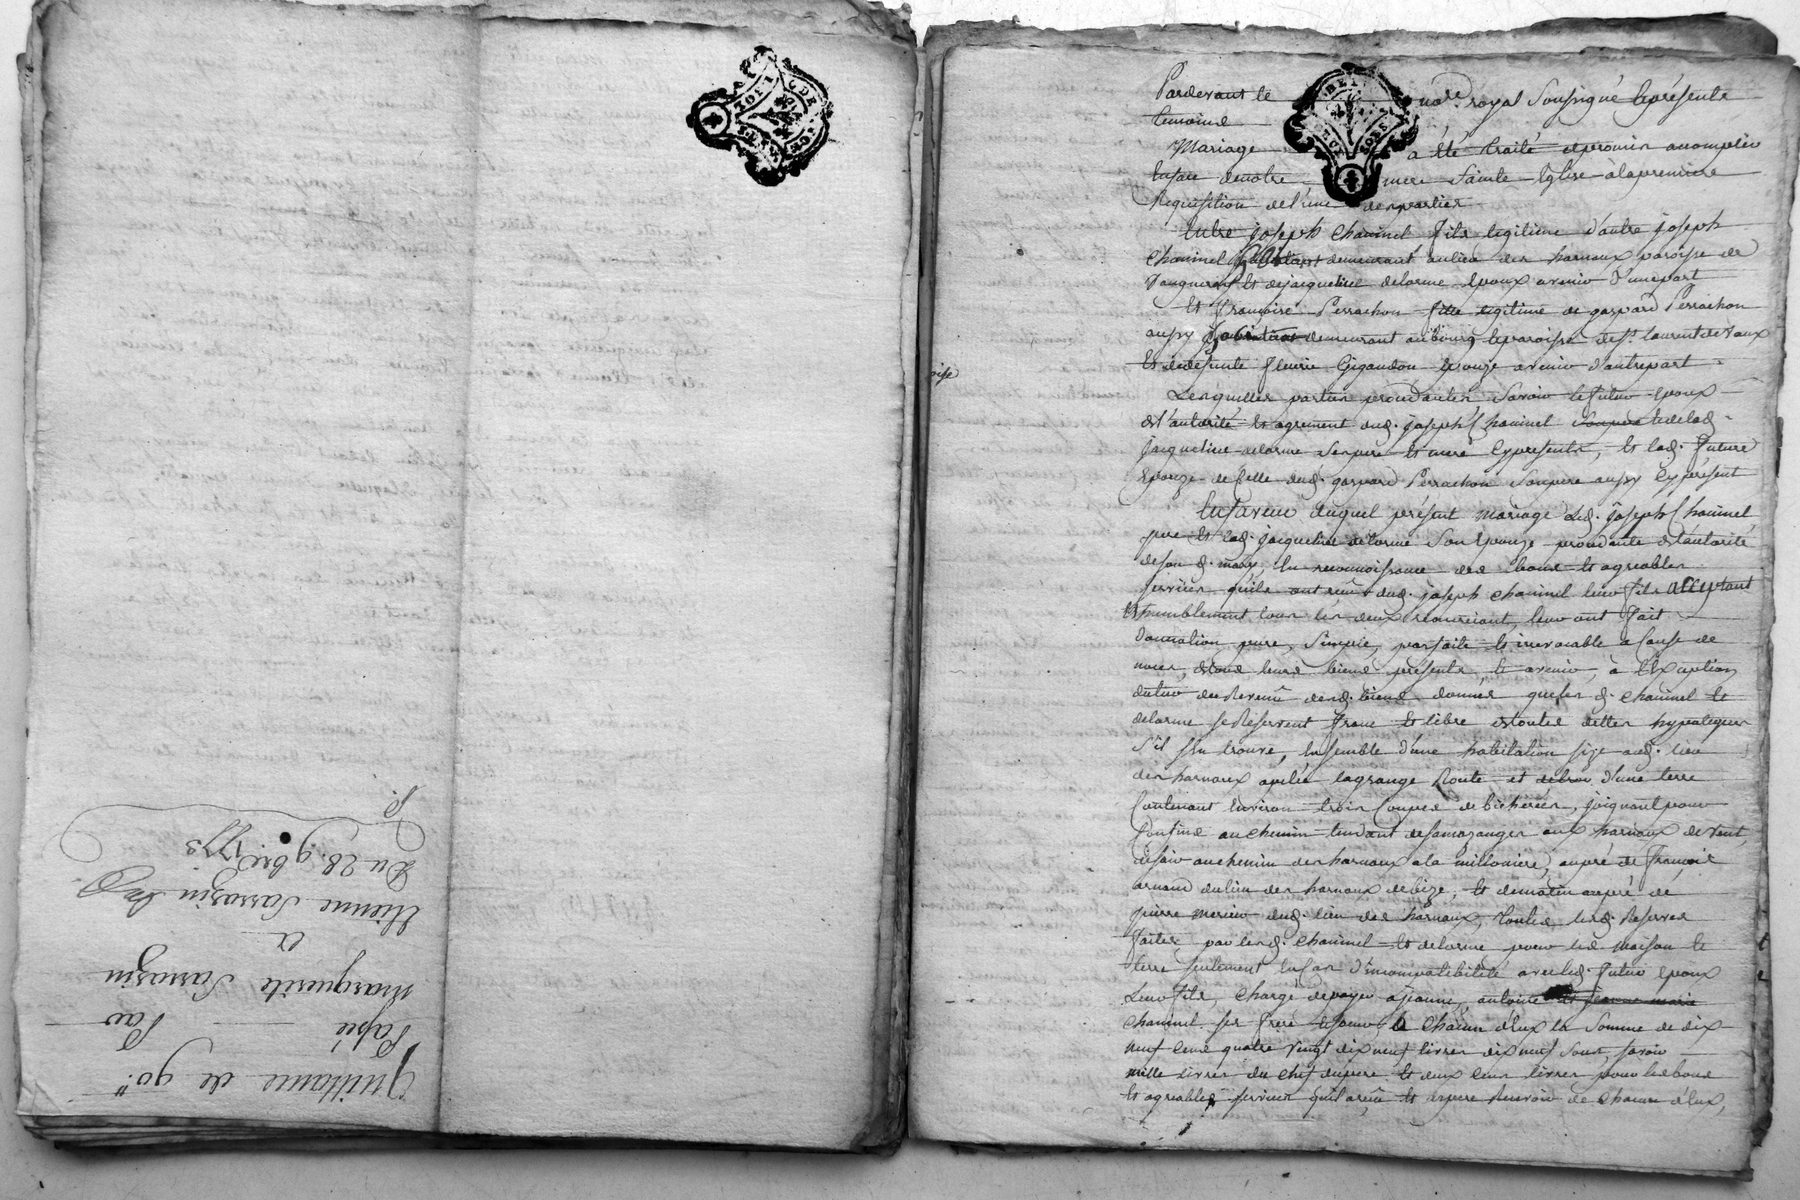 Quittance de 90.ᴸ
Passé Par
Marguerite Sarrazin
a
Etienne Sarrazin
Du 28 9bre 1773
P.
Pardevant le nore. royal Soussigné & présents
temoins
Mariage a été traité & promis accomplir
en face de notre mere Sainte Eglise à la premiere
Requisition de l'une des parties
Entre joseph chaninel fils legitime d'autre joseph
chaninel demeurant au lieu des harnaux paroisse de
Vaugneray & de jacqueline delorme Epoux avenir d'une part
Et françoise Perrachon fille legitime de gaspard Perrachon
aussy demeurant au bourg & paroisse de St. laurent de Vaux
& de defunte fleurie Gigandon Epouze avenir d'autre part
Lesquelles parties procedantes Savoir le futur Epoux
de l'autorité & agrement dud. joseph Chaninel & de lad.
jacqueline delorme Ses pere & mere Cy presents, & lad. future
Epouze de Celle dud. gaspard Perrachon Son pere aussy Cy présent
En faveur duquel présent mariage Led. joseph Chaninel
pere & lad. jacqueline delorme Son Epouze procedante de l'autorité
de son d. mary, En reconnoissance des bons & agreables
services qu'ils ont reçu dud. joseph chaninel leur fils acceptant
& humblement tous les deux remerciant, luy ont fait
Donnation pure, Simple, parfaite & irrevocable a Cause de
noces, de tous leurs biens présents & avenir, à l'Exception
du Revenu desd. biens donnés que les d. chaninel &
delorme se Reservent franc & libre de toutes dettes hypoteques
S'il s'en trouve, Ensemble d'une habitation size aud. lieu
des harnaux apellée lagrange Route et d'une terre
Contenant Environ trois Coupées de bicherées, joignant pour
Confins au chemin tendant de aux harnaux de Vent,
de soir au chemin des harnaux a la millonière, au pré de françois
arnaud du lieu des harnaux de bize, & de matin au pré de
pierre mercier dud. lieu des harnaux, toutes lesd. Reserves
faites par lesd. chaninel & delorme pour les maison &
terre seulement En Cas d'incompatibilité avec led. futur Epoux
Leur fils, Chargé de payer à jeanne, antoine et jeanne marie
chaninel ses frere & soeur a Chacun d'Eux la Somme de dix
neuf Cens quatre Vingt dix neuf livres dix neuf Sous, Savoir
mille livres du Chef du pere & deux Cens livres pour les bons
& agreables services qu'il a reçu & Espere Recevoir de Chacun d'Eux,